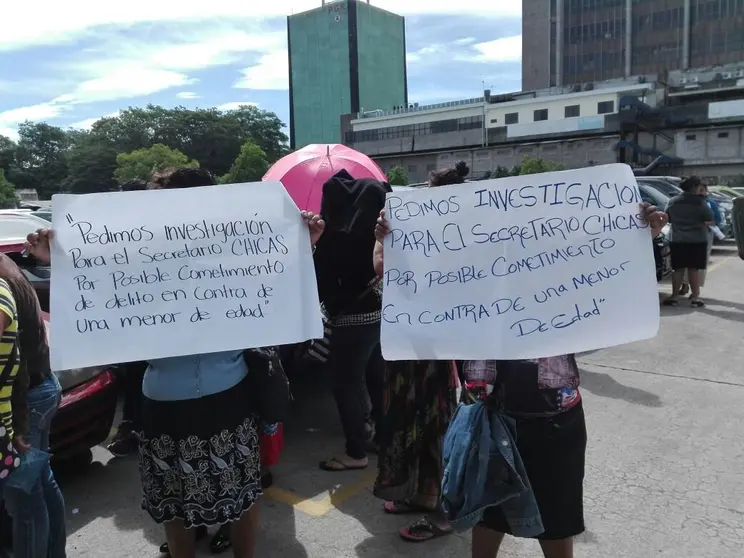 PGR
"Pedimos investigación
Para el Secretario CHICAS
Por Posible Cometimiento
de delito en contra de
una menor de edad"
PEDIMOS INVESTIGACION
PARA El SECRETARIO CHICAS
POR POSIBLE COMETIMIENTO
En CONTRA DE una MENOR
DE EDAD"